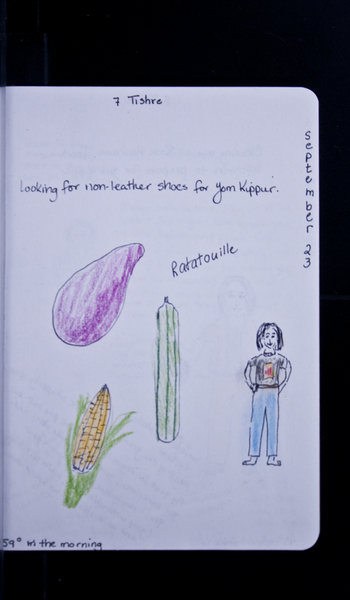 7 Tishre
September 23
Looking for non-leather shoes for Yom Kippur.
Ratatouille
59° in the morning